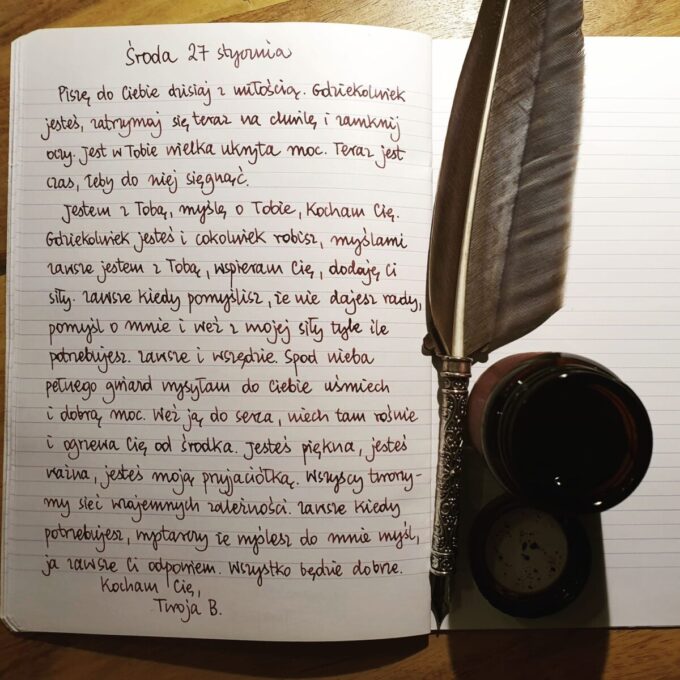 Środa 27 stycznia
Piszę do Ciebie dzisiaj z miłością. Gdziekolwiek
jesteś, zatrzymaj się teraz na chwilę i zamknij
oczy. Jest w Tobie wielka ukryta moc. Teraz jest
czas, żeby do niej sięgnąć.
Jestem z Tobą, myślę o Tobie, Kocham Cię.
Gdziekolwiek jesteś i cokolwiek robisz, myślami
zawsze jestem z Tobą, wspieram Cię, dodaję Ci
siły. Zawsze kiedy pomyślisz, że nie dajesz rady,
pomyśl o mnie i weź z mojej siły tyle ile
potrzebujesz. Zawsze i wszędzie. Spod nieba
pełnego gwiazd wysyłam do Ciebie uśmiech
i dobrą moc. Weź ją do serca, niech tam rośnie
i ogrzewa Cię od środka. Jesteś piękna, jesteś
ważna, jesteś moją przyjaciółką. Wszyscy tworzy-
my sieć wzajemnych zależności. Zawsze kiedy
potrzebujesz, wystarczy że myślesz do mnie myśl,
ja zawsze Ci odpowiem. Wszystko będzie dobrze.
Kocham Cię,
Twoja B.